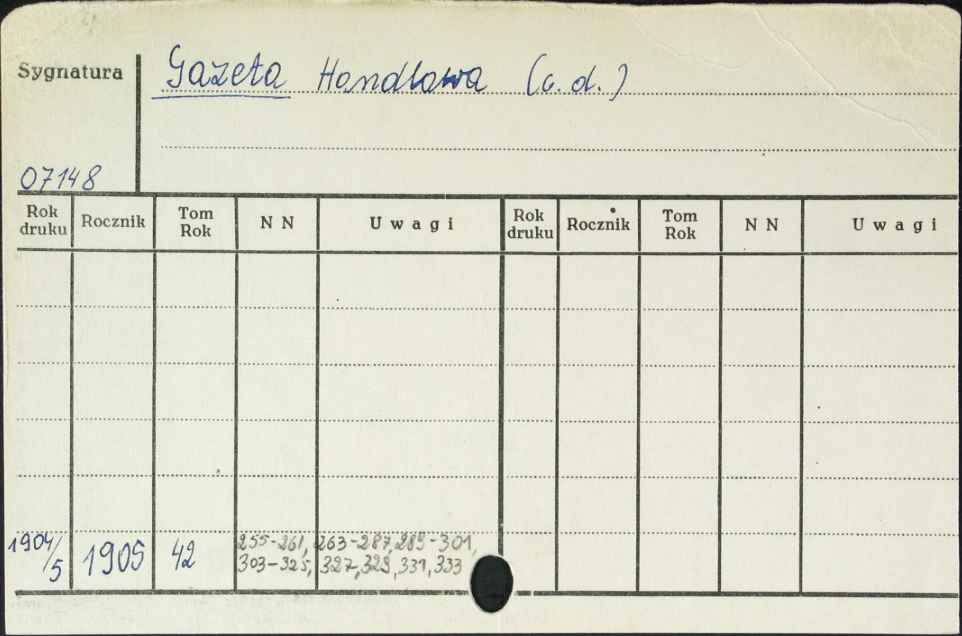 Sygnatura
Gazeta Handlowa (c.d.)
07148
Rok druku Rocznik Tom Rok N N Uwagi Rok druku Rocznik Tom Rok N N Uwagi
1904/5 1905 42 255-261, 263-287, 289-301,
303-325, 327, 329, 331, 333